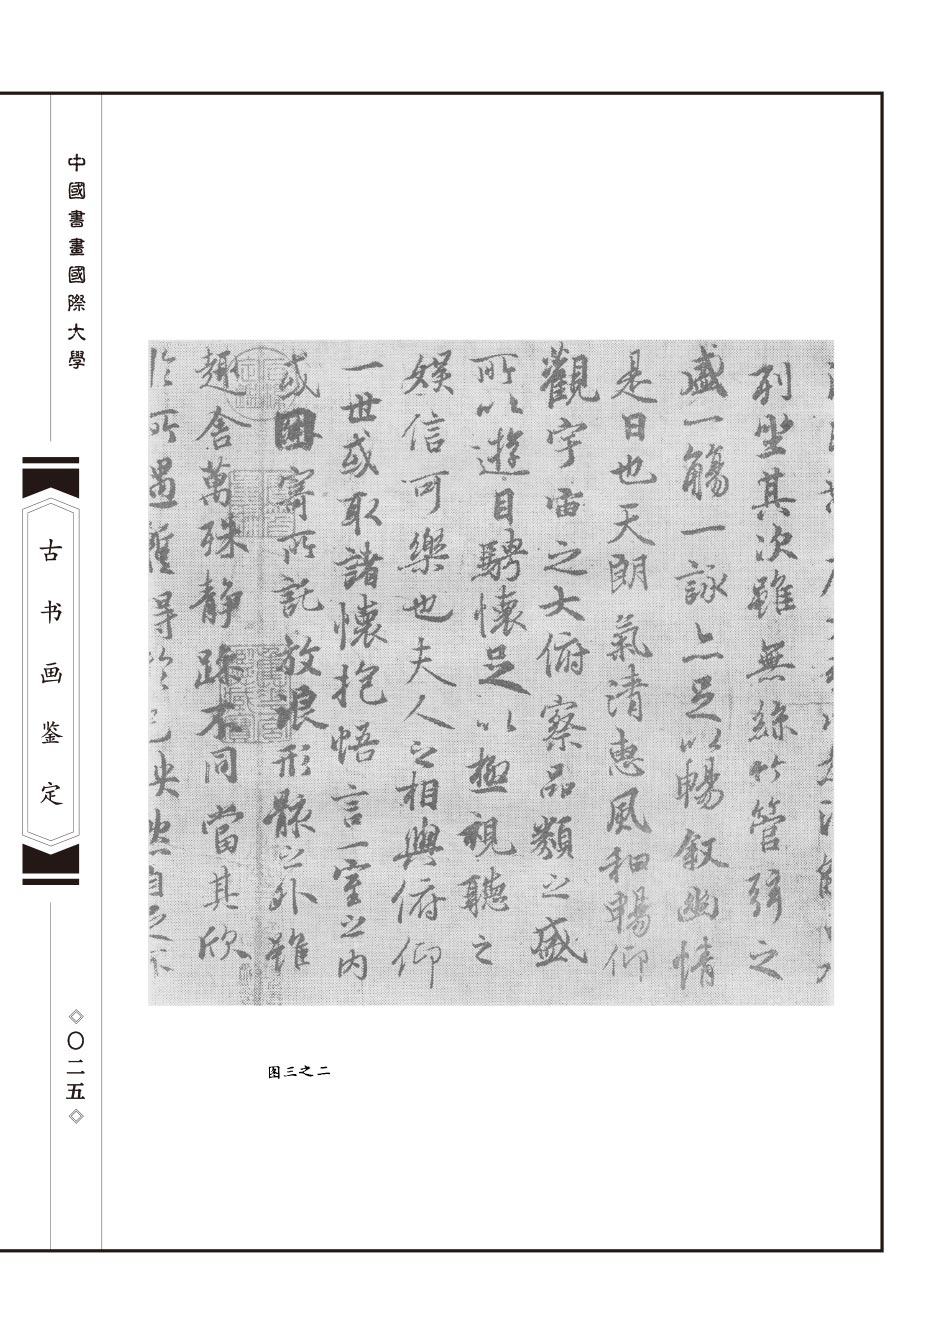 中國書畫國際大學
古书画鉴定
〇二五
列坐其次雖無絲竹管弦之
盛一觴一詠亦足以暢叙幽情
是日也天朗氣清惠風和暢仰
觀宇宙之大俯察品類之盛
所以遊目騁懷足以極視聽之
娛信可樂也夫人之相與俯仰
一世或取諸懷抱悟言一室之內
或因寄所託放浪形骸之外雖
趣舍萬殊静躁不同當其欣
於所遇蹔得於己怏然自足不
图三之二